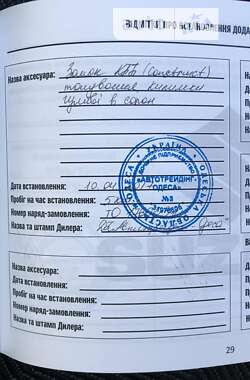 ВІДМІТКИ ПРО ВСТАНОВЛЕННЯ ДОДА
Назва аксесуара: Замок КПП (Construct)
килимки
в салон
Дата встановлення: 10.04
Пробіг на час встановлення: 5 км
Номер наряд-замовлення: ТО
Назва та штамп Дилера:
УКРАЇНА
ОДЕСА
ОДЕСЬКА ОБЛАСТЬ
ДОЧІРНЄ ПІДПРИЄМСТВО
«АВТОТРЕЙДІНГ-
ОДЕСА»
№3
31976596
Назва аксесуара:
Дата встановлення:
Пробіг на час встановлення:
Номер наряд-замовлення:
Назва та штамп Дилера:
29